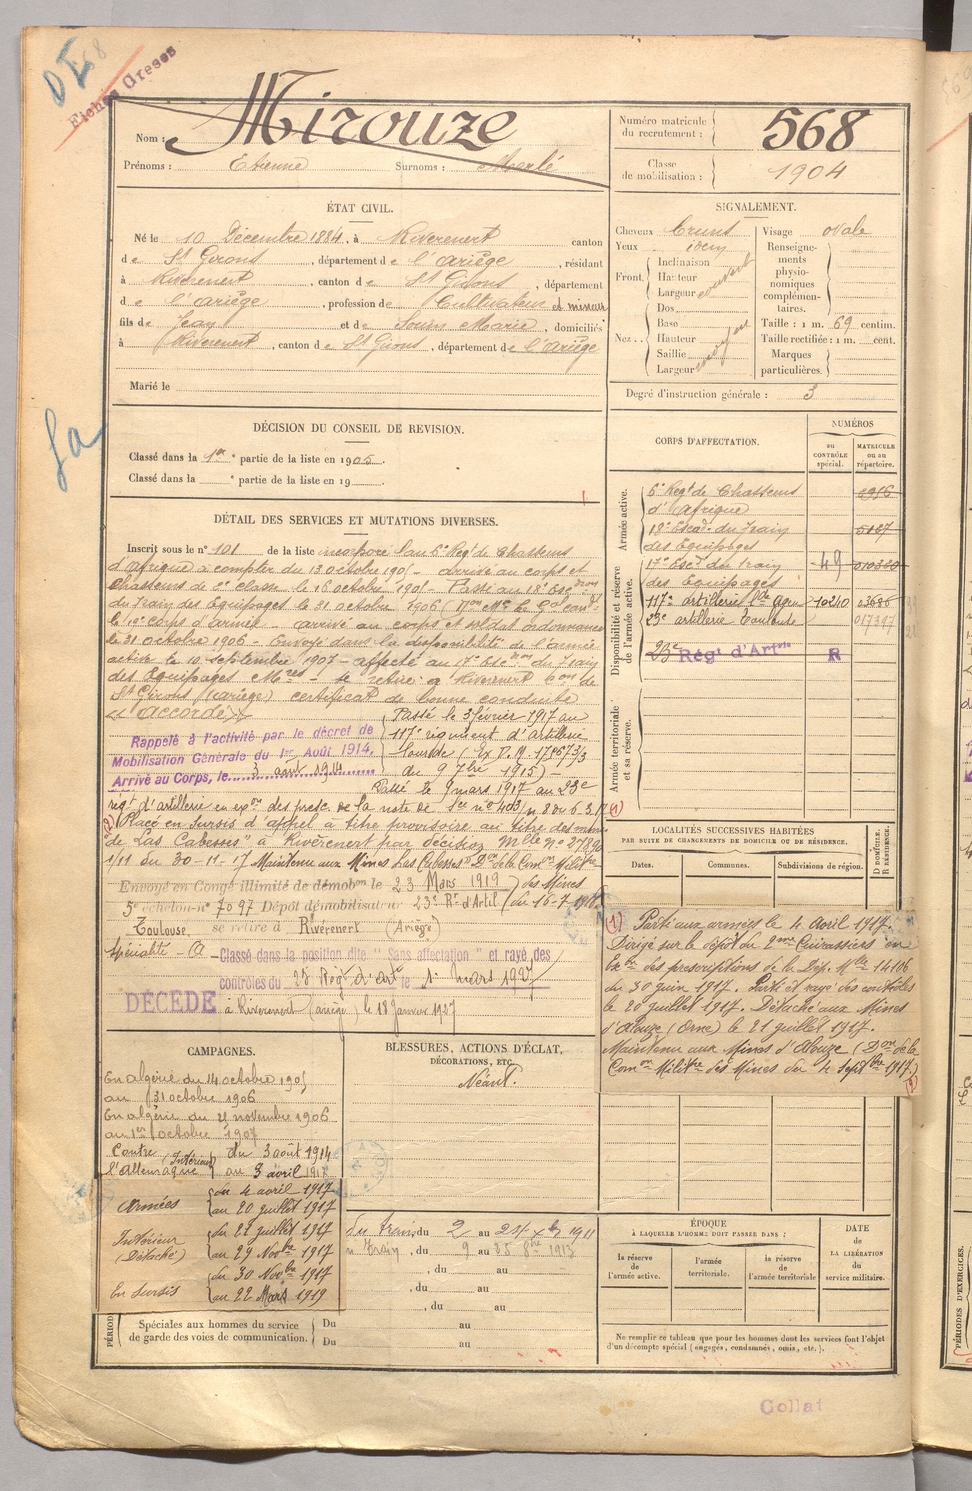 568
Fiches Greses
Nom : Mirouze
Prénoms : Etienne Surnoms :
Numéro matricule du recrutement : 568
Classe de mobilisation : 1904
ÉTAT CIVIL.
Né le 10 Décembre 1884, à Riverenert canton
de St Girons, département de l'Ariège, résidant
à Riverenert, canton de St Girons, département
de l'Ariège, profession de Cultivateur et mineur
fils de Jean et de Souin Marie, domiciliés
à Riverenert, canton de St Girons, département de l'Ariège
Marié le
SIGNALEMENT.
Cheveux bruns
Yeux
Front. Inclinaison
Hauteur
Largeur
Nez.. Dos
Base
Hauteur
Saillie
Largeur
Visage ovale
Renseignements physionomiques complémentaires.
Taille : 1 m. 69 centim.
Taille rectifiée : 1 m. cent.
Marques particulières.
Degré d'instruction générale : 3
DÉCISION DU CONSEIL DE REVISION.
Classé dans la 1re partie de la liste en 1905.
Classé dans la e partie de la liste en 19
DÉTAIL DES SERVICES ET MUTATIONS DIVERSES.
Inscrit sous le n° 101 de la liste incorporé au 6e Régt de chasseurs
d'afrique à compter du 13 octobre 1905 – arrivé au corps et
chasseur de 2e classe le 16 octobre 1905 – Passé au 18e Escdron
du Train des Equipages le 31 octobre 1906
le 19e corps d'armée – arrivé au corps et soldat ordonnance
le 31 octobre 1906 – Envoyé dans la disponibilité de l'armée
active le 10 septembre 1907 – affecté au 17e Escdron du Train
des Equipages Mres – se retire à Riverenert con de
St Girons (Ariège) certificat de bonne conduite
"accordé"
Rappelé à l'activité par le décret de
Mobilisation Générale du 1er Août 1914.
Arrivé au Corps, le 3 août 1914
Passé le 3 février 1917 au
117e régiment d'artillerie
Lourde (Ex D. M. 17867 3/3
du 9 7bre 1915) –
Passé le 9 mars 1917 au 23e
régt d'artillerie en exon des presc. de la note de
(2) Placé en sursis d'appel à titre provisoire au titre des mines
"de Las Cabesses" à Rivèrenert par décision Mlle n° 27892
1/11 du 30-11-17 Maintenu aux Mines Las Cabesses Don de la Comon Militre
des Mines du 16-7-1918
Envoyé en Congé illimité de démobon le 23 Mars 1919
5e échelon n° 7097 Dépôt démobilisateur 23e Rt d'Artil
Toulouse, se retire à Rivèrenert (Ariège)
Spécialité – A – Classé dans la position dite "Sans affectation" et rayé des
contrôles du 23 Régt d'art le 1er mars 1927
DÉCÉDÉ à Riverenert (ariège) le 18 janvier 1927
CORPS D'AFFECTATION.
NUMÉROS
au CONTRÔLE spécial.
MATRICULE ou au répertoire.
Armée active.
6e Régt de Chasseurs d'Afrique
18e Escad. du Train des Equipages 5187
Disponibilité et réserve de l'armée active.
17e Escd du Train des Equipages 49
117e artillerie lde 10240
23e artillerie Toulouse 017397
23e Régt d'Artrie R
Armée territoriale et sa réserve.
LOCALITÉS SUCCESSIVES HABITÉES
PAR SUITE DE CHANGEMENTS DE DOMICILE OU DE RÉSIDENCE.
Dates. Communes. Subdivisions de région. D DOMICILE. R RÉSIDENCE.
(1) Parti aux armées le 4 Avril 1917.
Dirigé sur le dépôt du 2me Cuirassiers en
exon des prescriptions de la Dép. Mlle 14106
du 30 juin 1917. Parti et rayé des contrôles
le 20 juillet 1917. Détaché aux Mines
d'Alouze (Orne) le 21 juillet 1917.
Maintenu aux Mines d'Alouze (Don de la
Comon Militre des Mines du 4 Septbre 1917.) (2)
CAMPAGNES.
En algérie du 14 octobre 1905
au 31 octobre 1906
En algérie du 21 novembre 1906
au 1er octobre 1907
Contre l'Allemagne
Intérieur du 3 août 1914
au 3 avril 1917
Armées du 4 avril 1917
au 20 juillet 1917
Intérieur (Détaché) du 21 juillet 1917
au 29 Novbre 1917
En Sursis du 30 Novbre 1917
au 22 Mars 1919
BLESSURES, ACTIONS D'ÉCLAT,
DÉCORATIONS, ETC.
Néant.
du train du 2 au 1911
du 9 au 25
, du au
, du au
Spéciales aux hommes du service de garde des voies de communication.
Du au
Du au
ÉPOQUE
À LAQUELLE L'HOMME DOIT PASSER DANS :
la réserve de l'armée active.
l'armée territoriale.
la réserve de l'armée territoriale
DATE de LA LIBÉRATION du service militaire.
Ne remplir ce tableau que pour les hommes dont les services font l'objet
d'un décompte spécial (engagés, condamnés, omis, etc.).
Collat
PÉRIODES D'EXERCICES.